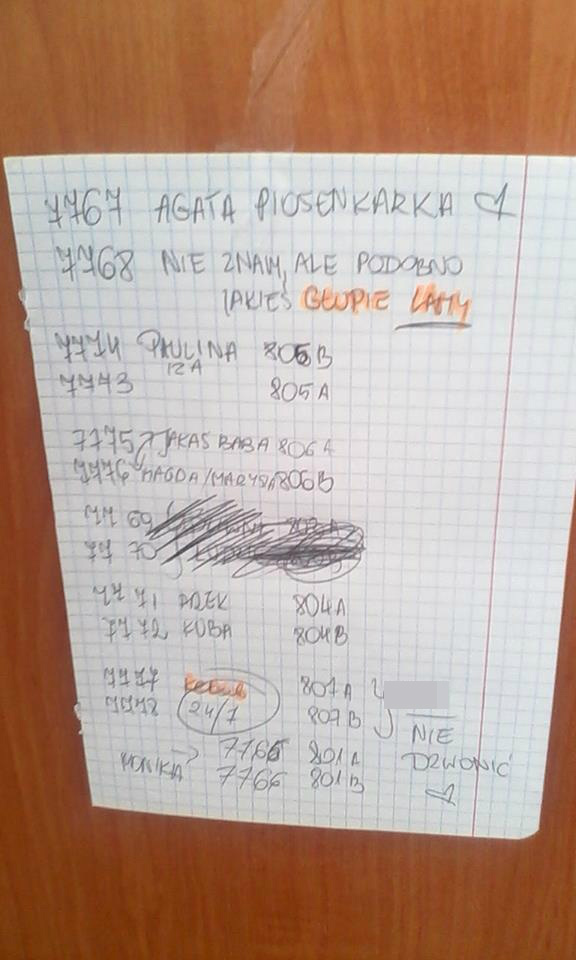 7767 AGATA PIOSENKARKA
7768 NIE ZNAM, ALE PODOBNO
JAKIEŚ GŁUPIE LAMY
7774 PAULINA 805B
IZA
7773 805A
7775 JAKAŚ BABA 806A
7776 MAGDA/MARYSIA 806B
7769
7770
7771 AREK 804A
7772 KUBA 804B
7777 KEBAB 807A
7778 24/7 807B
NIE
DZWONIĆ
7765 801A
MONIKA 7766 801B